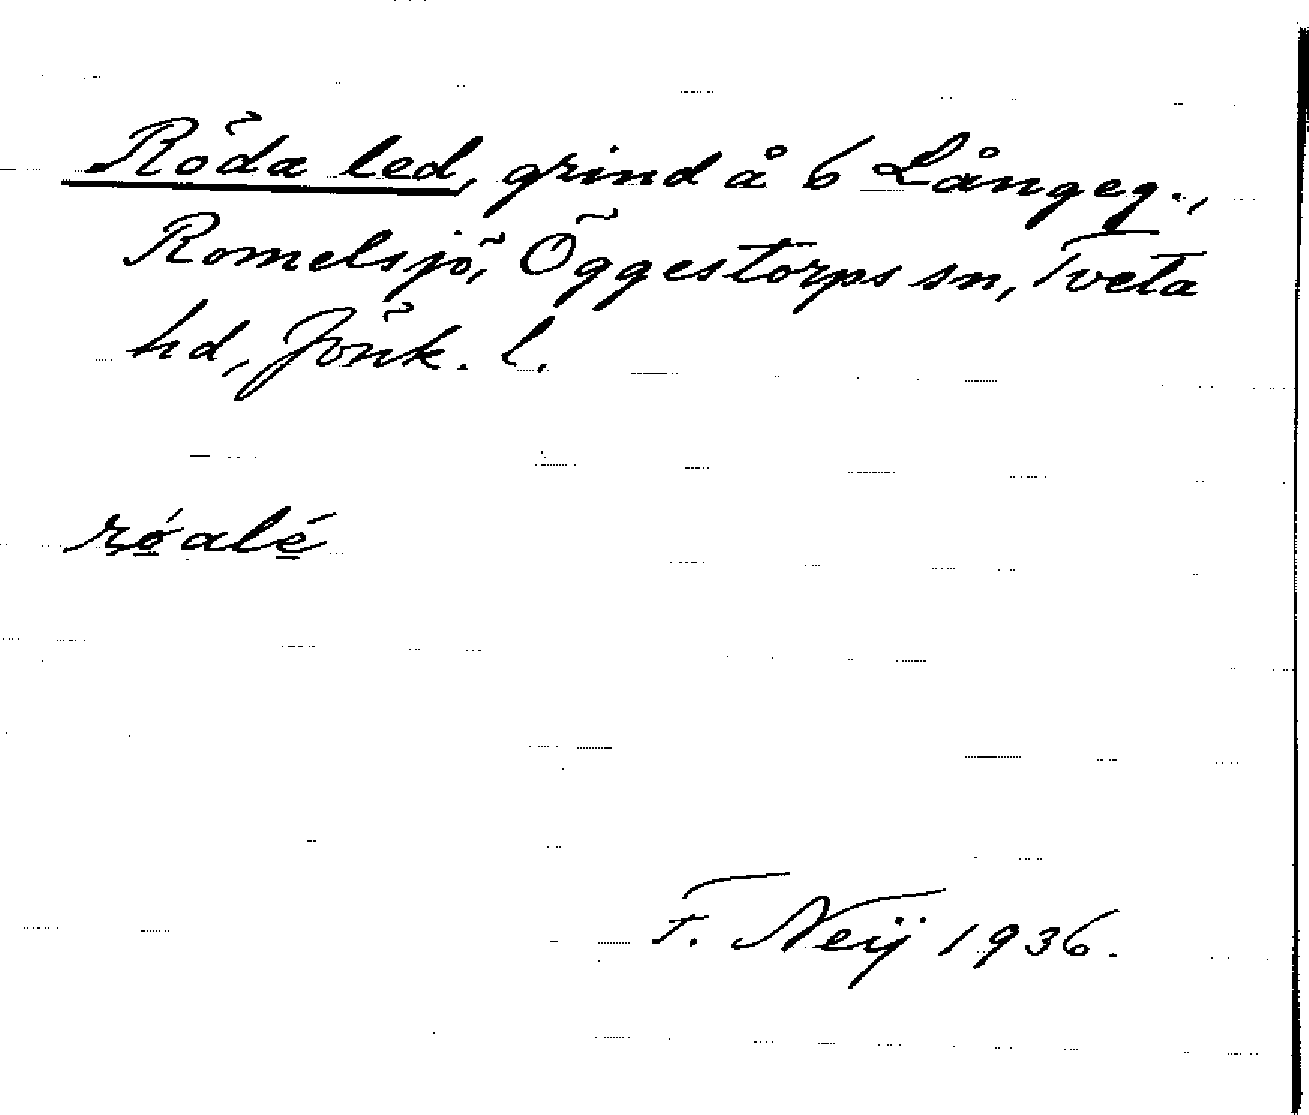 Röda led, grind å 6 Långeg.,
Romelsjö, Öggestorps sn, Tveta
hd, Jönk. l.
rǿalé
F. Neij 1936.